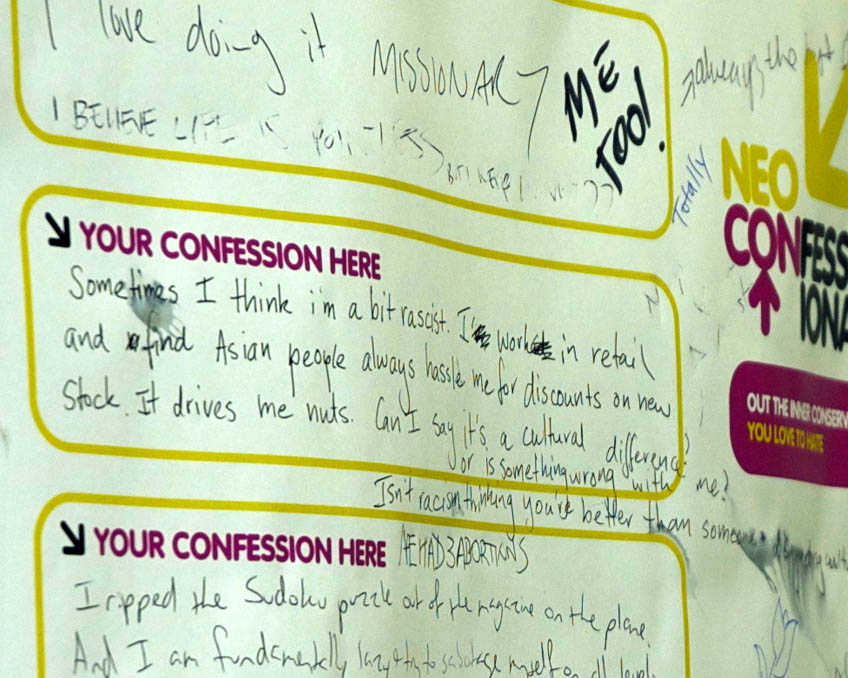 I love doing it MISSIONARY
ME
TOO!
I BELIEVE LIFE IS
always the
Totally
NEO
CONFESS
IONA
OUT THE INNER CONSERV
YOU LOVE TO HATE
YOUR CONFESSION HERE
Sometimes I think i'm a bit rascist. I work in retail
and find Asian people always hassle me for discounts on new
Stock. It drives me nuts. Can I say it's a cultural difference?
or is something wrong with me?
Isn't racism thinking you're better than someone
YOUR CONFESSION HERE
I ripped the Sudoku puzzle out of the magazine on the plane.
And I am fundamentally lazy & try to sabotage myself on all levels